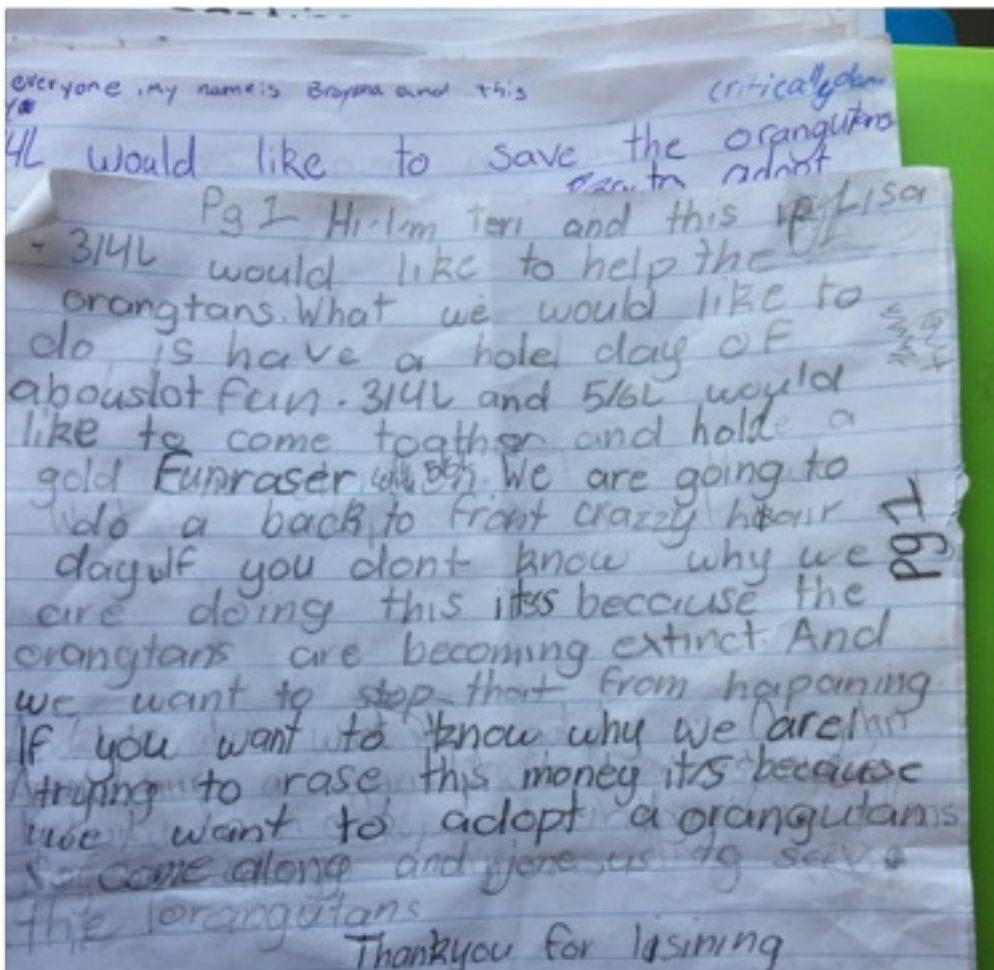 everyone, my name is Brayana and this
critically
4L would like to save the orangutans
to adopt
Pg 1 Hi-Im Teri and this is Lisa
3/4L would like to help the
orangtans. What we would like to
do is have a hole day of
abouslot fun. 3/4L and 5/6L would
like to come togther and hold a
gold Funraser We are going to
do a back to front crazzy hair
day. If you dont know why we
are doing this its because the
orangtans are becoming extinct. And
we want to stop that from hapaning
If you want to know why we are
trying to rase this money its because
we want to adopt a orangutans
So come along and jone us to save
the orangutans
Thankyou for lisining
Pg 1